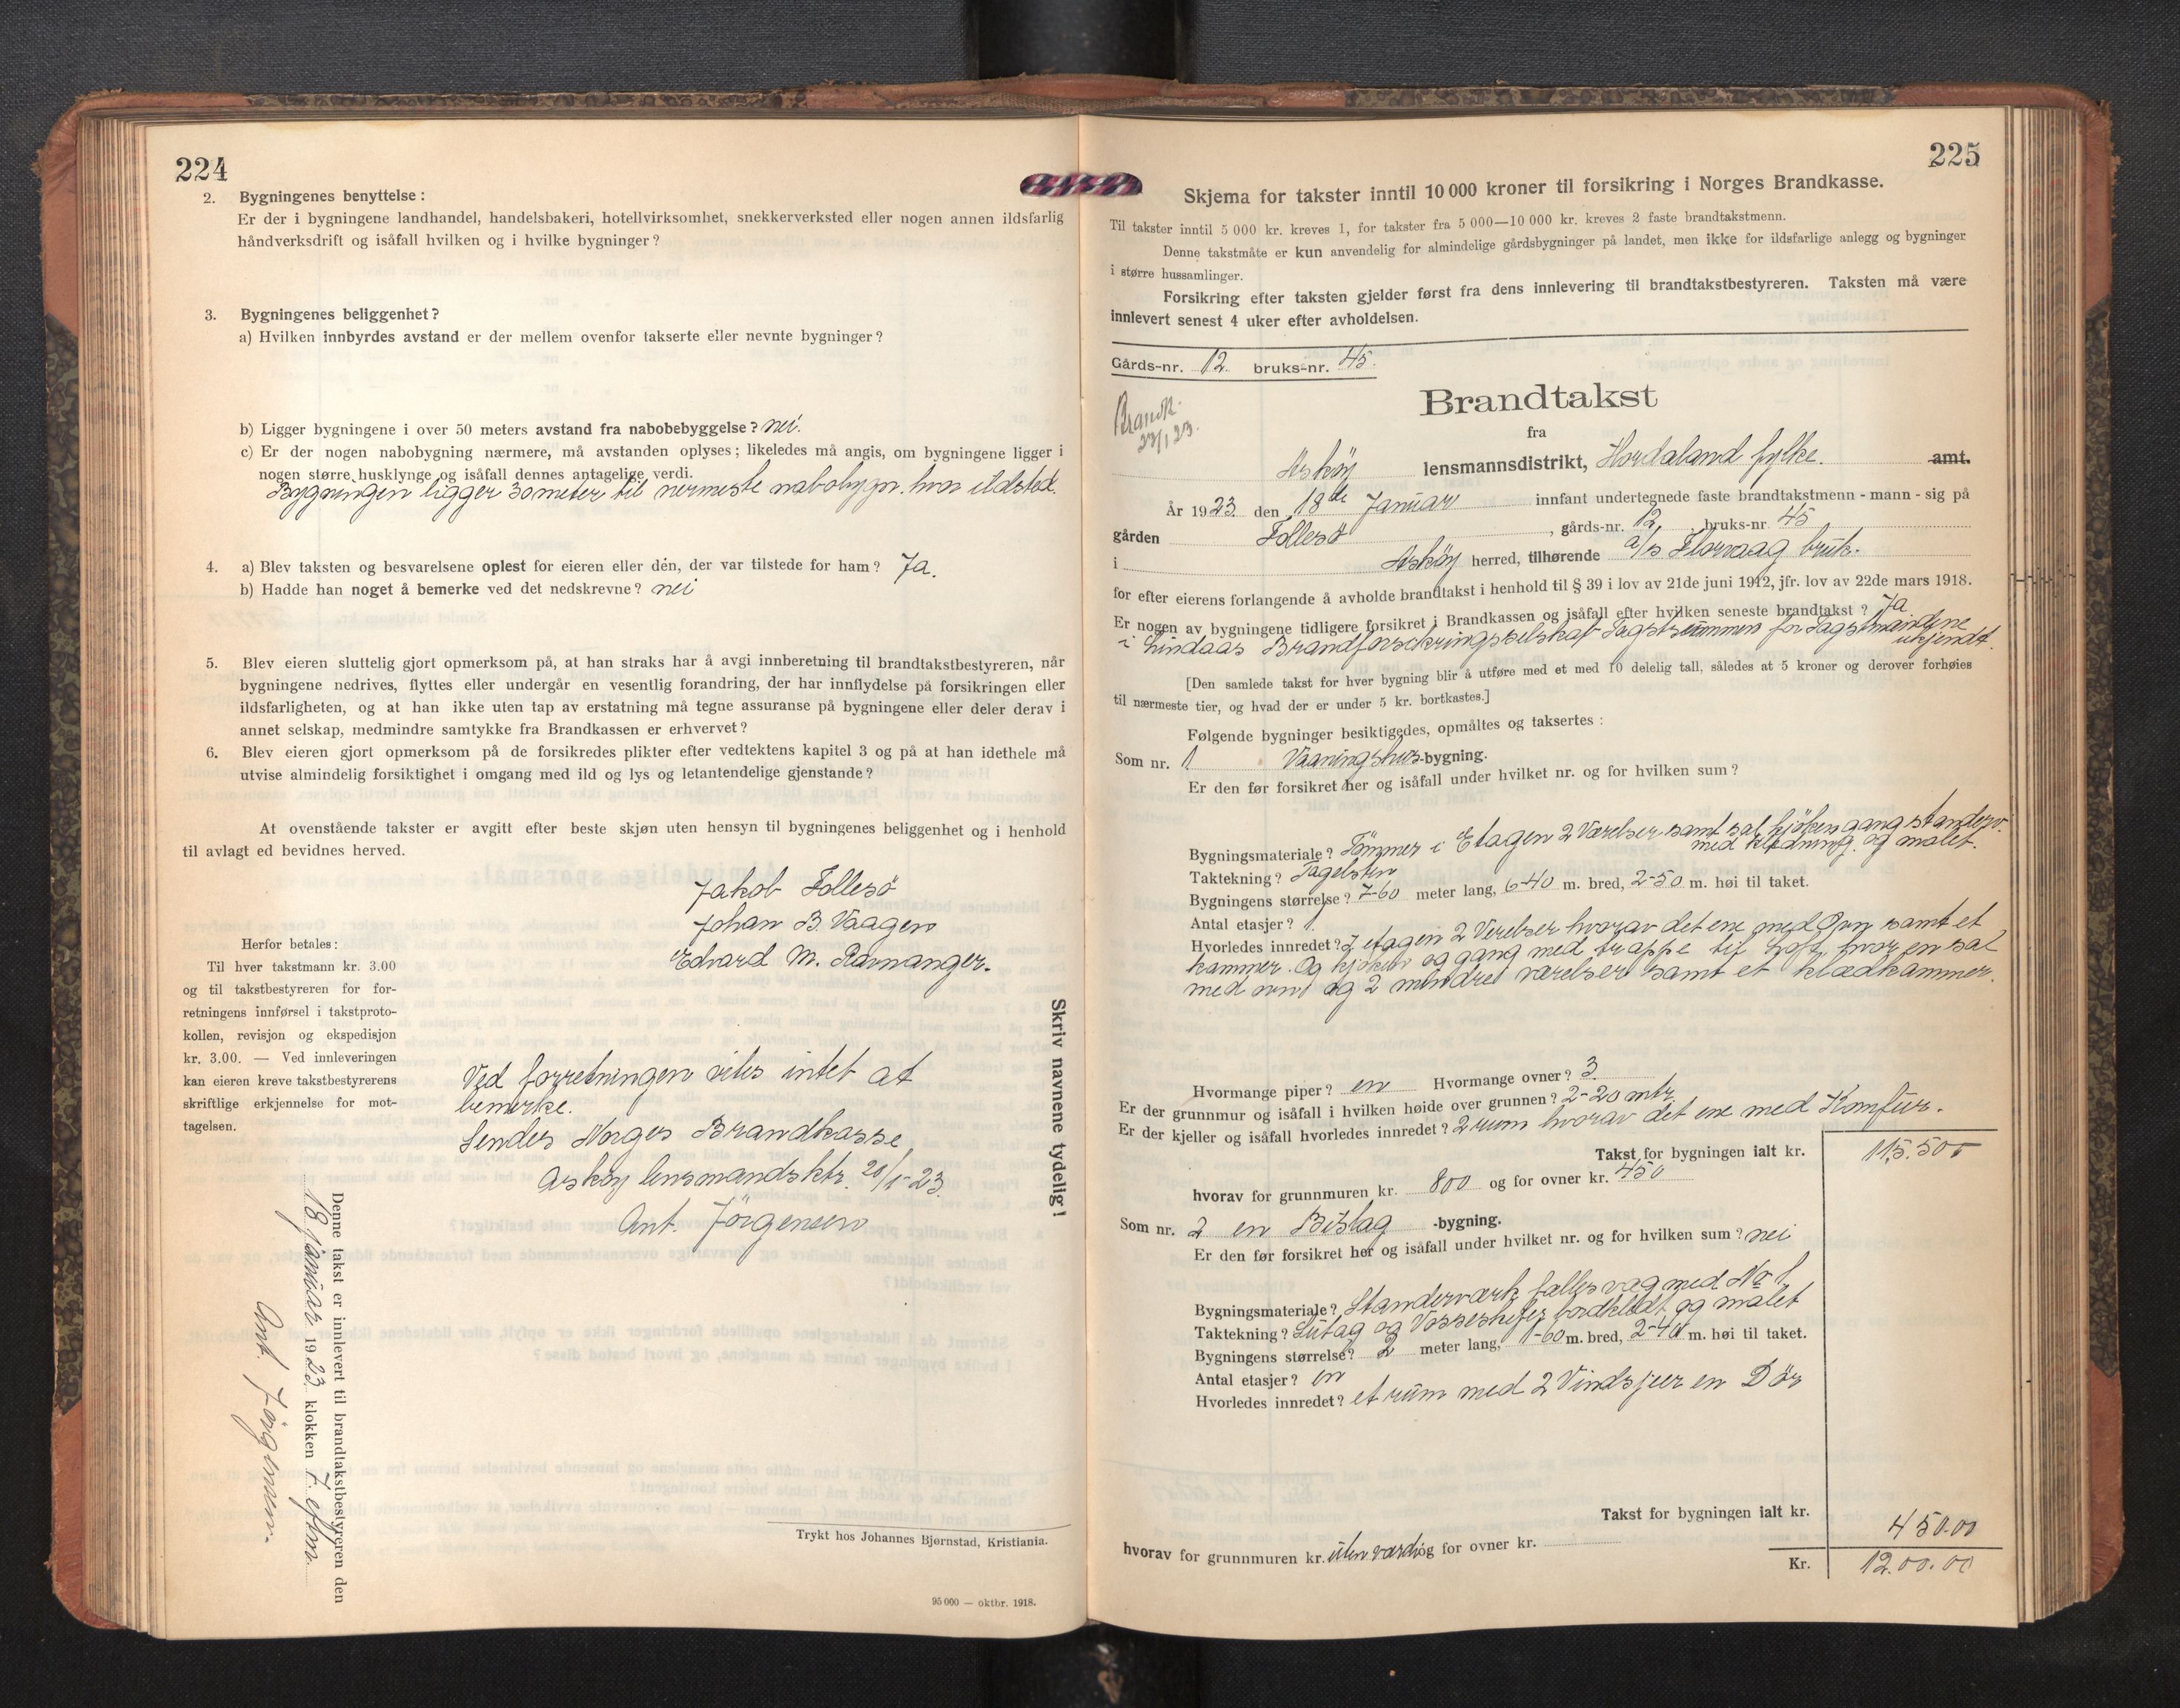 224
2. Bygningenes benyttelse:
Er der i bygningene landhandel, handelsbakeri, hotellvirksomhet, snekkerverksted eller nogen annen ildsfarlig
håndverksdrift og isåfall hvilken og i hvilke bygninger?
3. Bygningenes beliggenhet?
a) Hvilken innbyrdes avstand er der mellem ovenfor takserte eller nevnte bygninger?
b) Ligger bygningene i over 50 meters avstand fra nabobebyggelse? nei.
c) Er der nogen nabobygning nærmere, må avstanden oplyses; likeledes må angis, om bygningene ligger i
nogen større husklynge og isåfall dennes antagelige verdi.
Bygningen ligger 30 meter til nermeste nabobygn. hvor ildsted.
4. a) Blev taksten og besvarelsene oplest for eieren eller den, der var tilstede for ham? Ja.
b) Hadde han noget å bemerke ved det nedskrevne? nei
5. Blev eieren sluttelig gjort opmerksom på, at han straks har å avgi innberetning til brandtakstbestyreren, når
bygningene nedrives, flyttes eller undergår en vesentlig forandring, der har innflydelse på forsikringen eller
ildsfarligheten, og at han ikke uten tap av erstatning må tegne assuranse på bygningene eller deler derav i
annet selskap, medmindre samtykke fra Brandkassen er erhvervet?
6. Blev eieren gjort opmerksom på de forsikredes plikter efter vedtektens kapitel 3 og på at han idethele må
utvise almindelig forsiktighet i omgang med ild og lys og letantendelige gjenstande?
At ovenstående takster er avgitt efter beste skjøn uten hensyn til bygningenes beliggenhet og i henhold
til avlagt ed bevidnes herved.
Jakob Follesö
Johan B. Vaagen
Edvard M. Ravnanger.
Herfor betales:
Til hver takstmann kr. 3.00
og til takstbestyreren for for-
retningens innførsel i takstproto-
kollen, revisjon og ekspedisjon
kr. 3.00. — Ved innleveringen
kan eieren kreve takstbestyrerens
skriftlige erkjennelse for mot-
tagelsen.
Ved forretningen vites intet at
bemerke.
Sendes Norges Brandkasse
Askøy lensmandsktr. 20/1-23.
Ant. Jörgensen
Skriv navnene tydelig!
Denne takst er innlevert til brandtakstbestyreren den
18 januar 1923 klokken 7. eftm.
Ant. Jörgensen.
Trykt hos Johannes Bjørnstad, Kristiania.
95 000 — oktbr. 1918.
225
Skjema for takster inntil 10 000 kroner til forsikring i Norges Brandkasse.
Til takster inntil 5 000 kr. kreves 1, for takster fra 5 000—10 000 kr. kreves 2 faste brandtakstmenn.
Denne takstmåte er kun anvendelig for almindelige gårdsbygninger på landet, men ikke for ildsfarlige anlegg og bygninger
i større hussamlinger.
Forsikring efter taksten gjelder først fra dens innlevering til brandtakstbestyreren. Taksten må være
innlevert senest 4 uker efter avholdelsen.
Gårds-nr. 12. bruks-nr. 45.
Brandk.
23/1 23.
Brandtakst
fra
Askøy lensmannsdistrikt, Hordaland fylke. amt.
År 1923 den 18de Januar innfant undertegnede faste brandtakstmenn - mann - sig på
gården Follesö, gårds-nr. 12, bruks-nr. 45
i Askøy herred, tilhørende a/s Florvaag bruk.
for efter eierens forlangende å avholde brandtakst i henhold til § 39 i lov av 21de juni 1912, jfr. lov av 22de mars 1918.
Er nogen av bygningene tidligere forsikret i Brandkassen og isåfall efter hvilken seneste brandtakst? Ja.
i Lindaas Brandforsikringsselskap Tagstsummen for Tagstmændene
ukjendt.
[Den samlede takst for hver bygning blir å utføre med et med 10 delelig tall, således at 5 kroner og derover forhøies
til nærmeste tier, og hvad der er under 5 kr. bortkastes.]
Følgende bygninger besiktigedes, opmåltes og taksertes:
Som nr. 1 Vaaningshus-bygning.
Er den før forsikret her og isåfall under hvilket nr. og for hvilken sum?
Bygningsmateriale? Tömmer i Etagen 2 Værelser samt sal kjöken gang standerv.
med klædning. og malet.
Taktekning? Tagelsten
Bygningens størrelse? 7-60 meter lang, 6-40 m. bred, 2-50 m. høi til taket.
Antal etasjer? 1.
Hvorledes innredet? I etagen 2 Værelser hvorav det ene med Ovn samt et
kammer. Og kjöken og gang med trappe til Loft hvor en sal
med ovn og 2 mindre værelser samt et klædkammer.
Hvormange piper? en Hvormange ovner? 3.
Er der grunnmur og isåfall i hvilken høide over grunnen? 2-20 mtr.
Er der kjeller og isåfall hvorledes innredet? 2 rum hvorav det ene med Komfur.
Takst for bygningen ialt kr. 115.50
hvorav for grunnmuren kr. 800 og for ovner kr. 450
Som nr. 2 en Bislag -bygning.
Er den før forsikret her og isåfall under hvilket nr. og for hvilken sum? nei
Bygningsmateriale? Standerværk fælles væg med No 1.
Taktekning? Sutag og Vosseskifer bordklædt og malet
Bygningens størrelse? 2 meter lang, 1-60 m. bred, 2-40 m. høi til taket.
Antal etasjer? en
Hvorledes innredet? et rum med 2 Vindsjeer en Dör
Takst for bygningen ialt kr. 450.00
hvorav for grunnmuren kr. uten værdi og for ovner kr.
Kr. 12.00.00